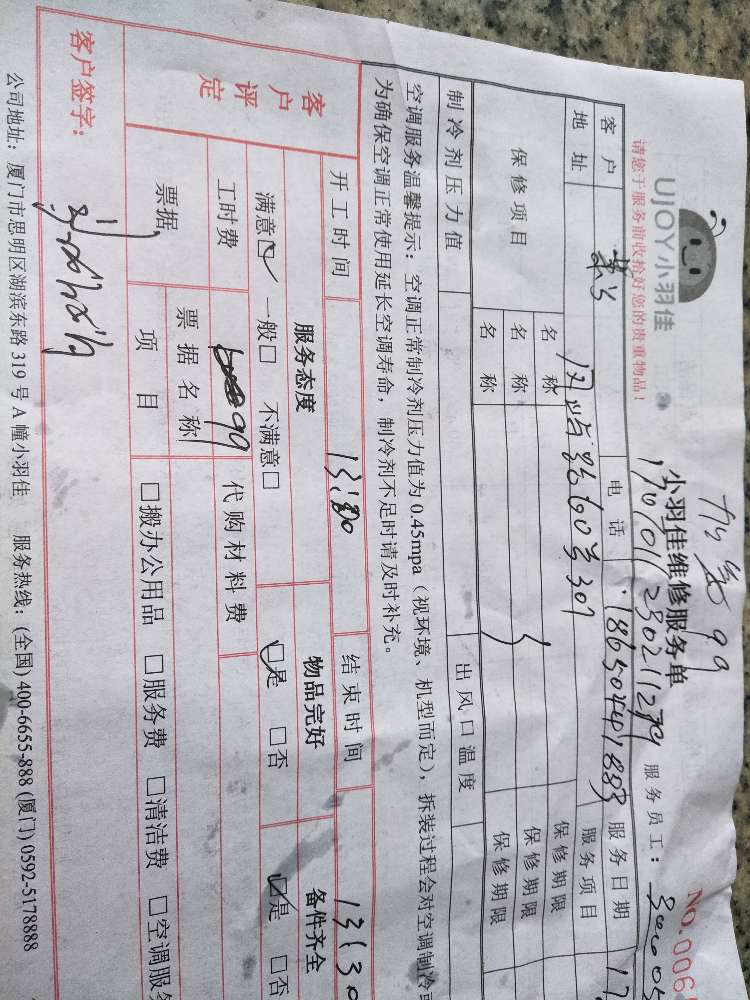 UJOY小羽佳
请您于服务前收拾好您的贵重物品！
小羽佳维修服务单
99
服务员工：
NO.006
客户
电话
18650441883
服务日期
17
地址
60号301
服务项目
保修项目
名称
保修期限
名称
保修期限
名称
保修期限
制冷剂压力值
出风口温度
空调服务温馨提示：空调正常制冷剂压力值为0.45mpa（视环境、机型而定），拆装过程会对空调制冷
为确保空调正常使用延长空调寿命，制冷剂不足时请及时补充。
开工时间
结束时间
13:30
客户评定
服务态度
物品完好
备件齐全
满意□ 一般□ 不满意□
□是 □否
□是 □否
工时费
99
代购材料费
票据
票据名称
项目
□搬办公用品 □服务费 □清洁费 □空调服
客户签字：
公司地址：厦门市思明区湖滨东路319号A幢小羽佳 服务热线：(全国) 400-6655-888 (厦门) 0592-5178888